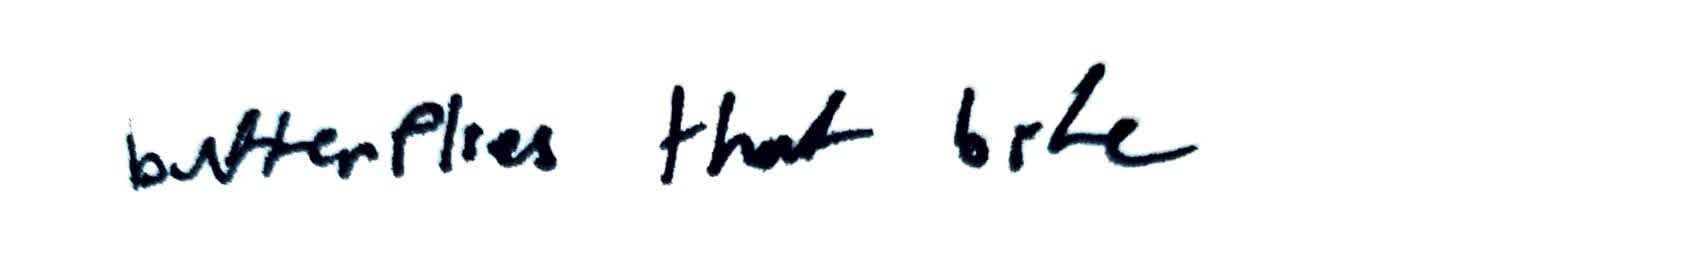 butterflies that bite